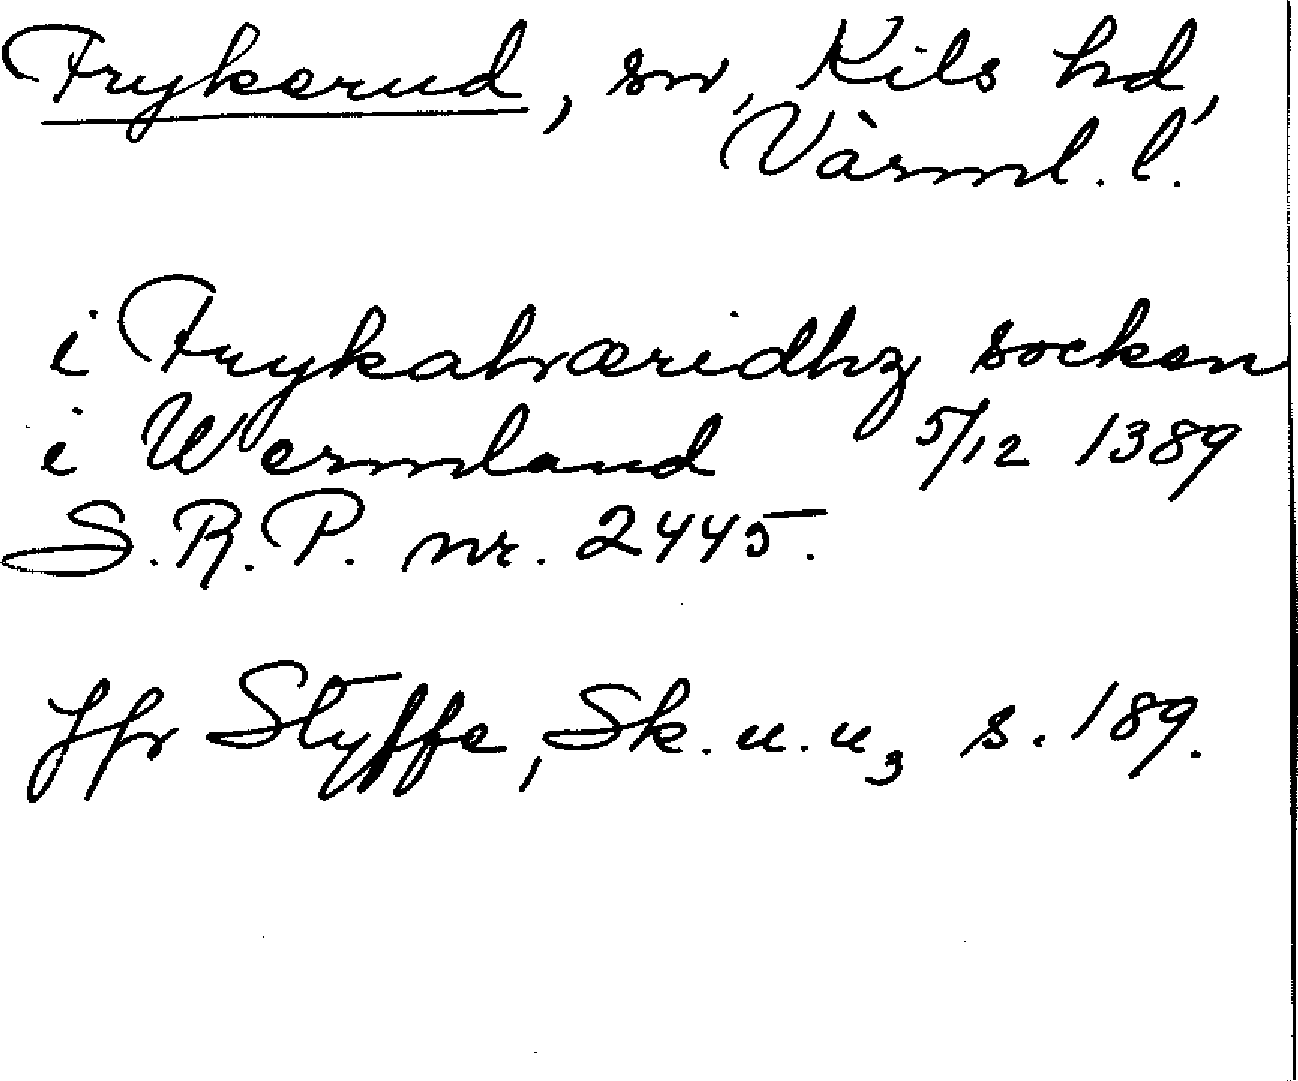 Frykerud, sn, Kils hd,
Värml. l.
i Frykahæridhz socken
i Wermland 5/12 1389
S.R.P. nr. 2445.
Jfr Styffe, Sk. u. u, s. 189.